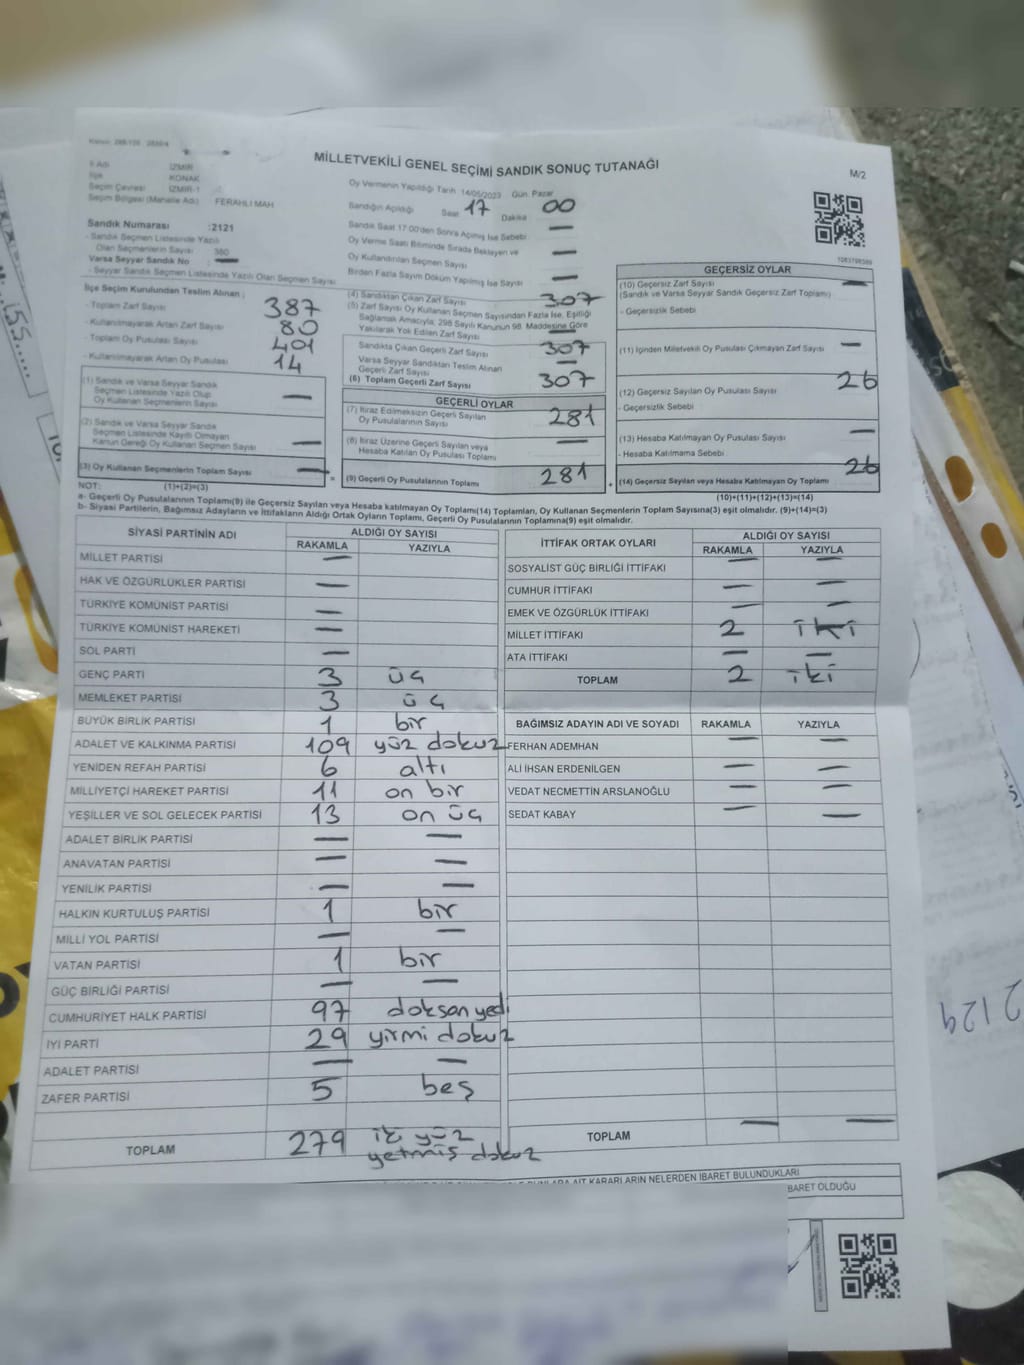 MİLLETVEKİLİ GENEL SEÇİMİ SANDIK SONUÇ TUTANAĞI
M/2
İl Adı İZMİR
İlçe KONAK
Seçim Çevresi İZMİR-1
Seçim Bölgesi (Mahalle Adı) FERAHLI MAH
Sandık Numarası :2121
- Sandık Seçmen Listesinde Yazılı
Olan Seçmenlerin Sayısı 380
Varsa Seyyar Sandık No —
- Seyyar Sandık Seçmen Listesinde Yazılı Olan Seçmen Sayısı
Oy Vermenin Yapıldığı Tarih 14/05/2023 Gün Pazar
Sandığın Açıldığı Saat 17 Dakika 00
Sandık Saat 17.00'den Sonra Açılmış İse Sebebi —
Oy Verme Saati Bitiminde Sırada Bekleyen ve
Oy Kullandırılan Seçmen Sayısı —
Birden Fazla Sayım Döküm Yapılmış İse Sayısı —
İlçe Seçim Kurulundan Teslim Alınan
- Toplam Zarf Sayısı 387
- Kullanılmayarak Artan Zarf Sayısı 80
- Toplam Oy Pusulası Sayısı 401
- Kullanılmayarak Artan Oy Pusulası 14
(1) Sandık ve Varsa Seyyar Sandık
Seçmen Listesinde Yazılı Olup
Oy Kullanan Seçmenlerin Sayısı —
(2) Sandık ve Varsa Seyyar Sandık
Seçmen Listesinde Kayıtlı Olmayan
Kanun Gereği Oy Kullanan Seçmen Sayısı —
(3) Oy Kullanan Seçmenlerin Toplam Sayısı —
(4) Sandıktan Çıkan Zarf Sayısı 307
(5) Zarf Sayısı Oy Kullanan Seçmen Sayısından Fazla İse, Eşitliği
Sağlamak Amacıyla, 298 Sayılı Kanunun 98. Maddesine Göre
Yakılarak Yok Edilen Zarf Sayısı —
Sandıkta Çıkan Geçerli Zarf Sayısı 307
Varsa Seyyar Sandıktan Teslim Alınan
Geçerli Zarf Sayısı —
(6) Toplam Geçerli Zarf Sayısı 307
GEÇERLİ OYLAR
(7) İtiraz Edilmeksizin Geçerli Sayılan
Oy Pusulalarının Sayısı 281
(8) İtiraz Üzerine Geçerli Sayılan veya
Hesaba Katılan Oy Pusulası Toplamı —
(9) Geçerli Oy Pusulalarının Toplamı 281
GEÇERSİZ OYLAR
(10) Geçersiz Zarf Sayısı —
(Sandık ve Varsa Seyyar Sandık Geçersiz Zarf Toplamı)
- Geçersizlik Sebebi
(11) İçinden Milletvekili Oy Pusulası Çıkmayan Zarf Sayısı —
(12) Geçersiz Sayılan Oy Pusulası Sayısı 26
- Geçersizlik Sebebi
(13) Hesaba Katılmayan Oy Pusulası Sayısı —
- Hesaba Katılmama Sebebi
(14) Geçersiz Sayılan veya Hesaba Katılmayan Oy Pusulası Toplamı 26
NOT: (1)+(2)=(3)
(10)+(11)+(12)+(13)=(14)
a- Geçerli Oy Pusulalarının Toplamı(9) ile Geçersiz Sayılan veya Hesaba katılmayan Oy Toplamı(14) Toplamları, Oy Kullanan Seçmenlerin Toplam Sayısına(3) eşit olmalıdır. (9)+(14)=(3)
b- Siyasi Partilerin, Bağımsız Adayların ve İttifakların Aldığı Ortak Oyların Toplamı, Geçerli Oy Pusulalarının Toplamına(9) eşit olmalıdır.
SİYASİ PARTİNİN ADI ALDIĞI OY SAYISI
RAKAMLA YAZIYLA
MİLLET PARTİSİ —
HAK VE ÖZGÜRLÜKLER PARTİSİ —
TÜRKİYE KOMÜNİST PARTİSİ —
TÜRKİYE KOMÜNİST HAREKETİ —
SOL PARTİ —
GENÇ PARTİ 3 üç
MEMLEKET PARTİSİ 3 üç
BÜYÜK BİRLİK PARTİSİ 1 bir
ADALET VE KALKINMA PARTİSİ 109 yüz dokuz
YENİDEN REFAH PARTİSİ 6 altı
MİLLİYETÇİ HAREKET PARTİSİ 11 on bir
YEŞİLLER VE SOL GELECEK PARTİSİ 13 on üç
ADALET BİRLİK PARTİSİ — —
ANAVATAN PARTİSİ — —
YENİLİK PARTİSİ — —
HALKIN KURTULUŞ PARTİSİ 1 bir
MİLLİ YOL PARTİSİ — —
VATAN PARTİSİ 1 bir
GÜÇ BİRLİĞİ PARTİSİ — —
CUMHURİYET HALK PARTİSİ 97 doksan yedi
İYİ PARTİ 29 yirmi dokuz
ADALET PARTİSİ — —
ZAFER PARTİSİ 5 beş
TOPLAM 279 iki yüz
yetmiş dokuz
İTTİFAK ORTAK OYLARI ALDIĞI OY SAYISI
RAKAMLA YAZIYLA
SOSYALİST GÜÇ BİRLİĞİ İTTİFAKI — —
CUMHUR İTTİFAKI — —
EMEK VE ÖZGÜRLÜK İTTİFAKI — —
MİLLET İTTİFAKI 2 iki
ATA İTTİFAKI — —
TOPLAM 2 iki
BAĞIMSIZ ADAYIN ADI VE SOYADI RAKAMLA YAZIYLA
FERHAN ADEMHAN — —
ALİ İHSAN ERDENİLGEN — —
VEDAT NECMETTİN ARSLANOĞLU — —
SEDAT KABAY — —
TOPLAM — —
AİT KARARLARIN NELERDEN İBARET BULUNDUKLARI
İBARET OLDUĞU
2129